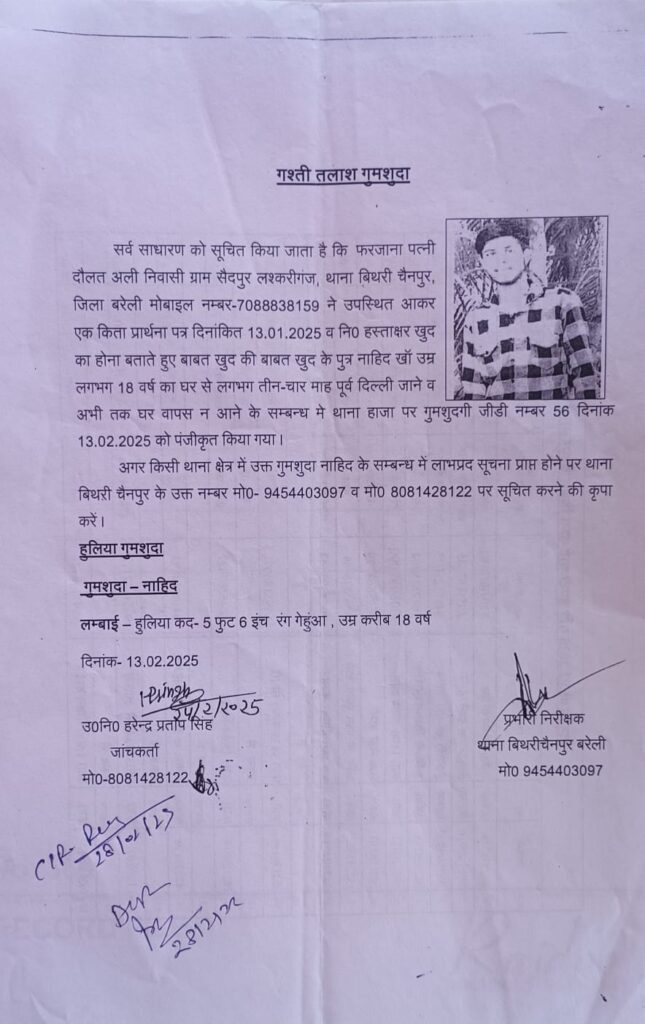 गश्ती तलाश गुमशुदा
सर्व साधारण को सूचित किया जाता है कि फरजाना पत्नी
दौलत अली निवासी ग्राम सैदपुर लश्करीगंज, थाना बिथरी चैनपुर,
जिला बरेली मोबाइल नम्बर-7088838159 ने उपस्थित आकर
एक किता प्रार्थना पत्र दिनांकित 13.01.2025 व नि0 हस्ताक्षर खुद
का होना बताते हुए बाबत खुद की बाबत खुद के पुत्र नाहिद खॉ उम्र
लगभग 18 वर्ष का घर से लगभग तीन-चार माह पूर्व दिल्ली जाने व
अभी तक घर वापस न आने के सम्बन्ध मे थाना हाजा पर गुमशुदगी जीडी नम्बर 56 दिनांक
13.02.2025 को पंजीकृत किया गया।
अगर किसी थाना क्षेत्र में उक्त गुमशुदा नाहिद के सम्बन्ध में लाभप्रद सूचना प्राप्त होने पर थाना
बिथरी चैनपुर के उक्त नम्बर मो0- 9454403097 व मो0 8081428122 पर सूचित करने की कृपा
करें।
हुलिया गुमशुदा
गुमशुदा – नाहिद
लम्बाई – हुलिया कद- 5 फुट 6 इंच रंग गेहुंआ , उम्र करीब 18 वर्ष
दिनांक- 13.02.2025
14/2/2025
उ0नि0 हरेन्द्र प्रताप सिंह
जांचकर्ता
मो0-8081428122
प्रभारी निरीक्षक
थाना बिथरीचैनपुर बरेली
मो0 9454403097